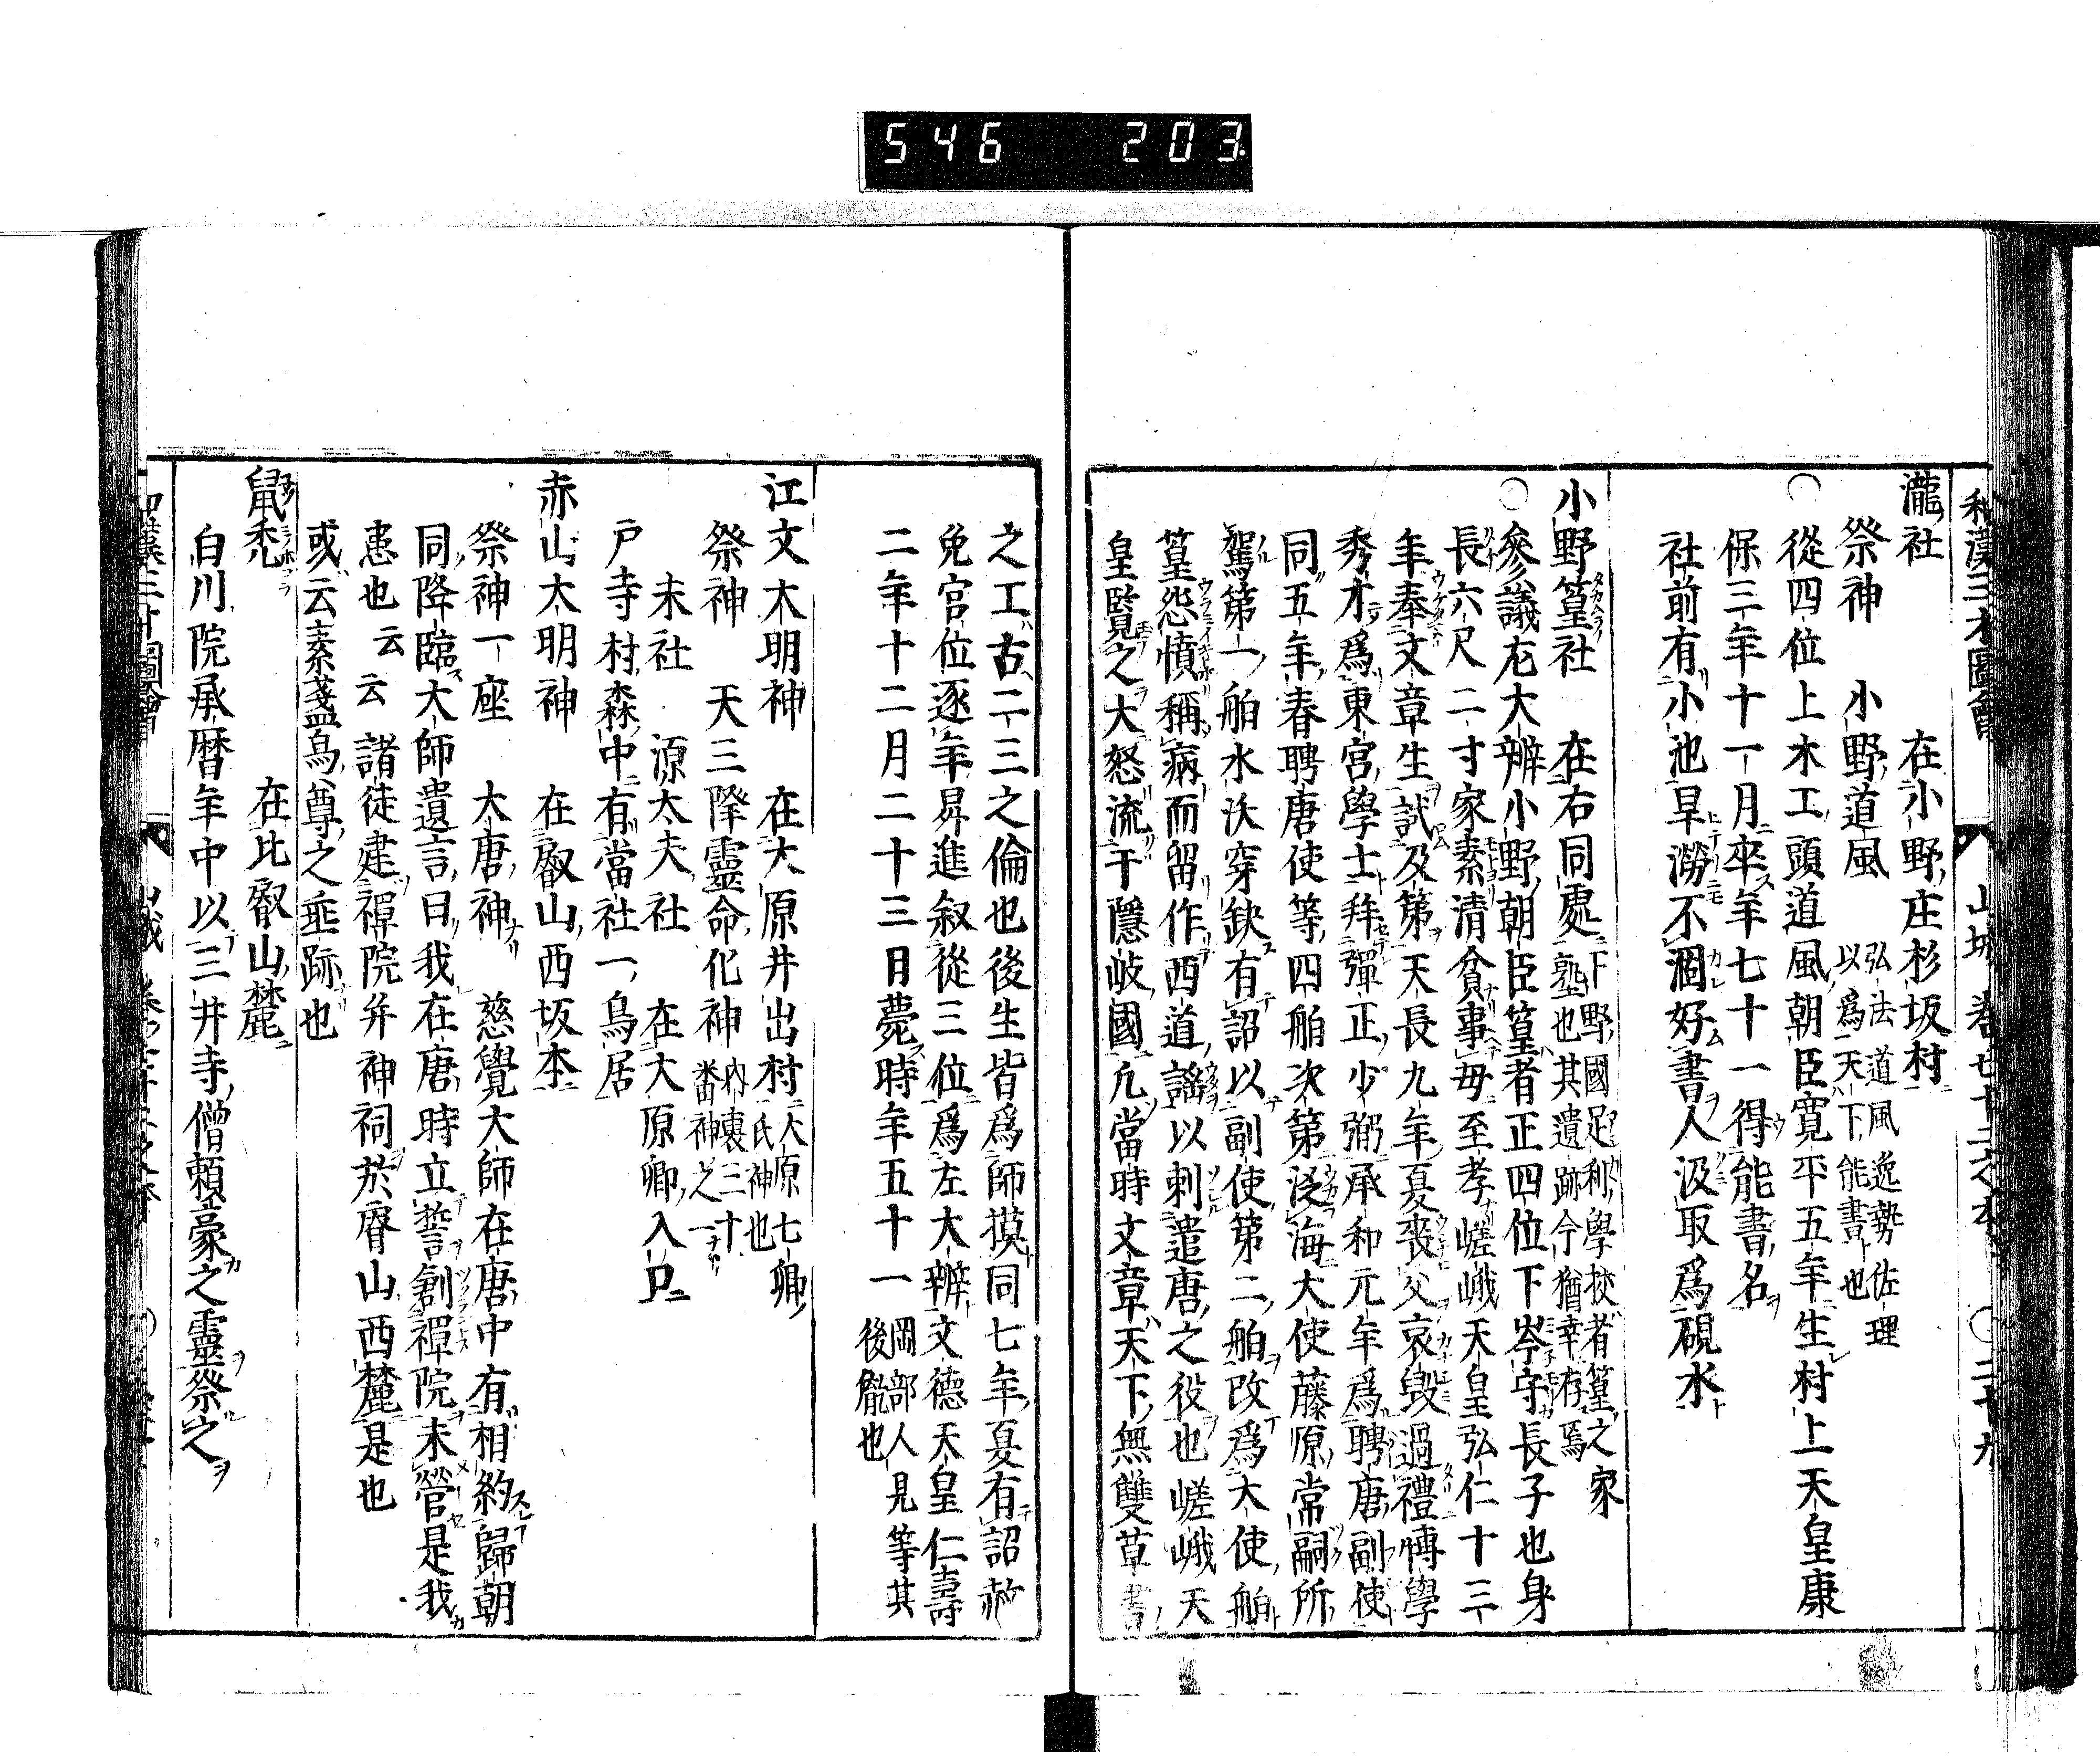 546 203
和漢三才圖會 山城 卷七十二之本 ○二十九
瀧社 在小野庄杉坂村
祭神 小野道風 弘法道風逸勢佐理
以爲天下能書也
○從四位上木工頭道風朝臣寛平五年生村上天皇康
保三年十一月卒年七十一得能書名
社前有小池旱澇不涸好書人汲取爲硯水
小野篁社 在右同處 下野國足利學校者篁之家
塾也其遺跡今猶幸存焉
○參議左大辨小野朝臣篁者正四位下岑守長子也身
長六尺二寸家素清貧事母至孝嵯峨天皇弘仁十三
年奉文章生試及第天長九年夏喪父哀毀過禮博學
秀才爲東宮學士拜彈正少弼承和元年爲聘唐副使
同五年春聘唐使等四舶次第泛海大使藤原常嗣所
駕第一舶水沃穿缺有詔以副使第二舶改爲大使舶
篁怨憤稱病而留作西道謠以刺遣唐之役也嵯峨天
皇覧之大怒流于隱岐國凢當時文章天下無雙草書
之工古二三之倫也後生皆爲師摸同七年夏有詔赦
免官位逐年昇進叙從三位爲左大辨文德天皇仁壽
二年十二月二十三日薨時年五十一 岡部人見等其
後胤也
江文大明神 在大原井出村 大原七郷
氏神也
祭神 天三降靈命化神 内裏三十
番神之一
末社 源太夫社 在大原郷入口
戸寺村森中有當社一鳥居
赤山大明神 在叡山西坂本
祭神一座 大唐神 慈覺大師在唐中有相約歸朝
同降臨大師遺言曰我在唐時立誓創禪院未營是我
恚也云云諸徒建禪院并神祠於脣山西麓是也
或云素戔烏尊之垂跡也
鼠禿 在比叡山麓
白川院承暦年中以三井寺僧頼豪之靈祭之